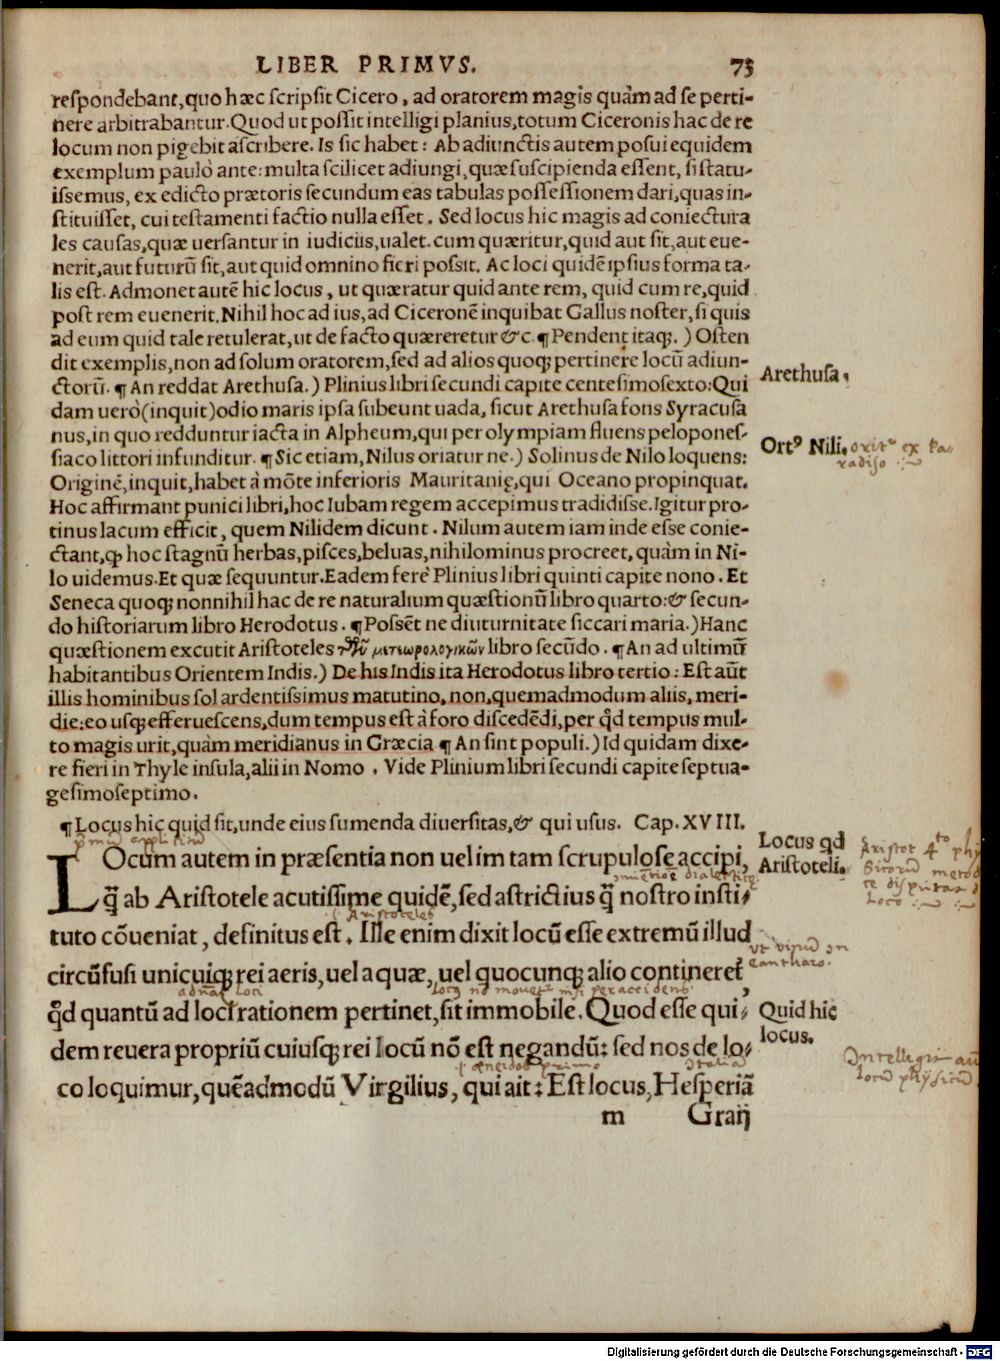 LIBER PRIMVS. 73
respondebant,quo hæc scripsit Cicero, ad oratorem magis quàm ad se perti-
nere arbitrabantur.Quod ut possit intelligi planius,totum Ciceronis hac de re
locum non pigebit ascribere. Is sic habet: Ab adiunctis autem posui equidem
exemplum paulò ante: multa scilicet adiungi,quæ suscipienda essent, si statu-
issemus, ex edicto prætoris secundum eas tabulas possessionem dari,quas in-
stituisset, cui testamenti factio nulla esset. Sed locus hic magis ad coniectura
les causas,quæ uersantur in iudiciis,ualet.cum quæritur,quid aut sit,aut eue-
nerit,aut futurũ sit,aut quid omnino fieri possit. Ac loci quidẽ ipsius forma ta-
lis est. Admonet autẽ hic locus, ut quæratur quid ante rem, quid cum re,quid
post rem euenerit.Nihil hoc ad ius,ad Ciceronẽ inquibat Gallus noster,si quis
ad eum quid tale retulerat,ut de facto quæreretur &c. ¶Pendent itaq;.) Osten
dit exemplis,non ad solum oratorem,sed ad alios quoq; pertinere locũ adiun-
ctorũ. ¶An reddat Arethusa.) Plinius libri secundi capite centesimosexto:Qui
dam uerò(inquit)odio maris ipsa subeunt uada, sicut Arethusa fons Syracusa
nus,in quo redduntur iacta in Alpheum,qui per olympiam fluens pelopones-
siaco littori infunditur. ¶Sic etiam, Nilus oriatur ne.) Solinus de Nilo loquens:
Originẽ,inquit,habet à mõte inferioris Mauritanię,qui Oceano propinquat.
Hoc affirmant punici libri,hoc Iubam regem accepimus tradidisse.Igitur pro-
tinus lacum efficit, quem Nilidem dicunt. Nilum autem iam inde esse conie-
ctant,ꝙ hoc stagnũ herbas,pisces,beluas,nihilominus procreet, quàm in Ni-
lo uidemus.Et quæ sequuntur.Eadem ferè Plinius libri quinti capite nono. Et
Seneca quoq; nonnihil hac de re naturalium quæstionũ libro quarto:& secun-
do historiarum libro Herodotus. ¶Possẽt ne diuturnitate siccari maria.)Hanc
quæstionem excutit Aristoteles τῶν μετεωρολογικῶν libro secũdo. ¶An ad ultimũ
habitantibus Orientem Indis.) De his Indis ita Herodotus libro tertio: Est aũt
illis hominibus sol ardentissimus matutino, non,quemadmodum aliis, meri-
die:eo usq; efferuescens,dum tempus est à foro discedẽdi,per qd tempus mul-
to magis urit,quàm meridianus in Græcia ¶An sint populi.)Id quidam dixe-
re fieri in Thyle insula,alii in Nomo. Vide Plinium libri secundi capite septua-
gesimoseptimo.
Arethusa.
Ort⁹ Nili.
orit^r ex Pa-
radiso
¶Locus hic quid sit,unde eius sumenda diuersitas,& qui usus. Cap.XVIII.
LOcum autem in præsentia non uelim tam scrupulose accipi,
q̃ ab Aristotele acutissime quidẽ,sed astrictius q̃ nostro insti-
Aristoteles
tuto cõueniat, definitus est. Ille enim dixit locũ esse extremũ illud
circũfusi unicuiq; rei aeris,uel aquæ, uel quocunq; alio contineret,
loc⁹ nõ movet^r nisi per accidens
qd quantũ ad loci rationem pertinet,sit immobile. Quod esse qui-
dem reuera propriũ cuiusq; rei locũ nõ est negandũ: sed nos de lo-
æneidos primo Italia
co loquimur,quẽadmodũ Virgilius, qui ait: Est locus, Hesperiã
m Graij
Locus qd
Aristoteli.
Quid hic
locus.
Intellegit
locũ physicũ
Digitalisierung gefördert durch die Deutsche Forschungsgemeinschaft - DFG